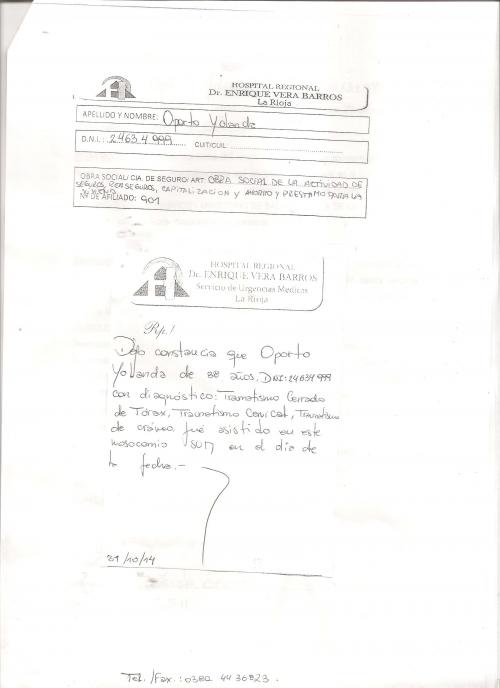 HOSPITAL REGIONAL
Dr. ENRIQUE VERA BARROS
La Rioja
APELLIDO Y NOMBRE: Oporto Yolanda
D.N.I.: 24634999 CUIT/CUIL
OBRA SOCIAL/ CIA. DE SEGURO/ ART OBRA SOCIAL DE LA ACTIVIDAD DE
SEGUROS, REASEGUROS, CAPITALIZACION Y AHORRO Y PRESTAMO PARA LA
VIVIENDA
Nº DE AFILIADO: 901
HOSPITAL REGIONAL
Dr. ENRIQUE VERA BARROS
Servicio de Urgencias Medicas
La Rioja
Rp./
Dejo constancia que Oporto
Yolanda de 38 años, DNI: 24634999
con diagnóstico: Traumatismo Cerrado
de Tórax, Traumatismo Cervical, Traumatismo
de cráneo. fué asistido en este
nosocomio SUM en el día de
la fecha.-
31/10/14
Tel./Fax.: 0380 4430823.